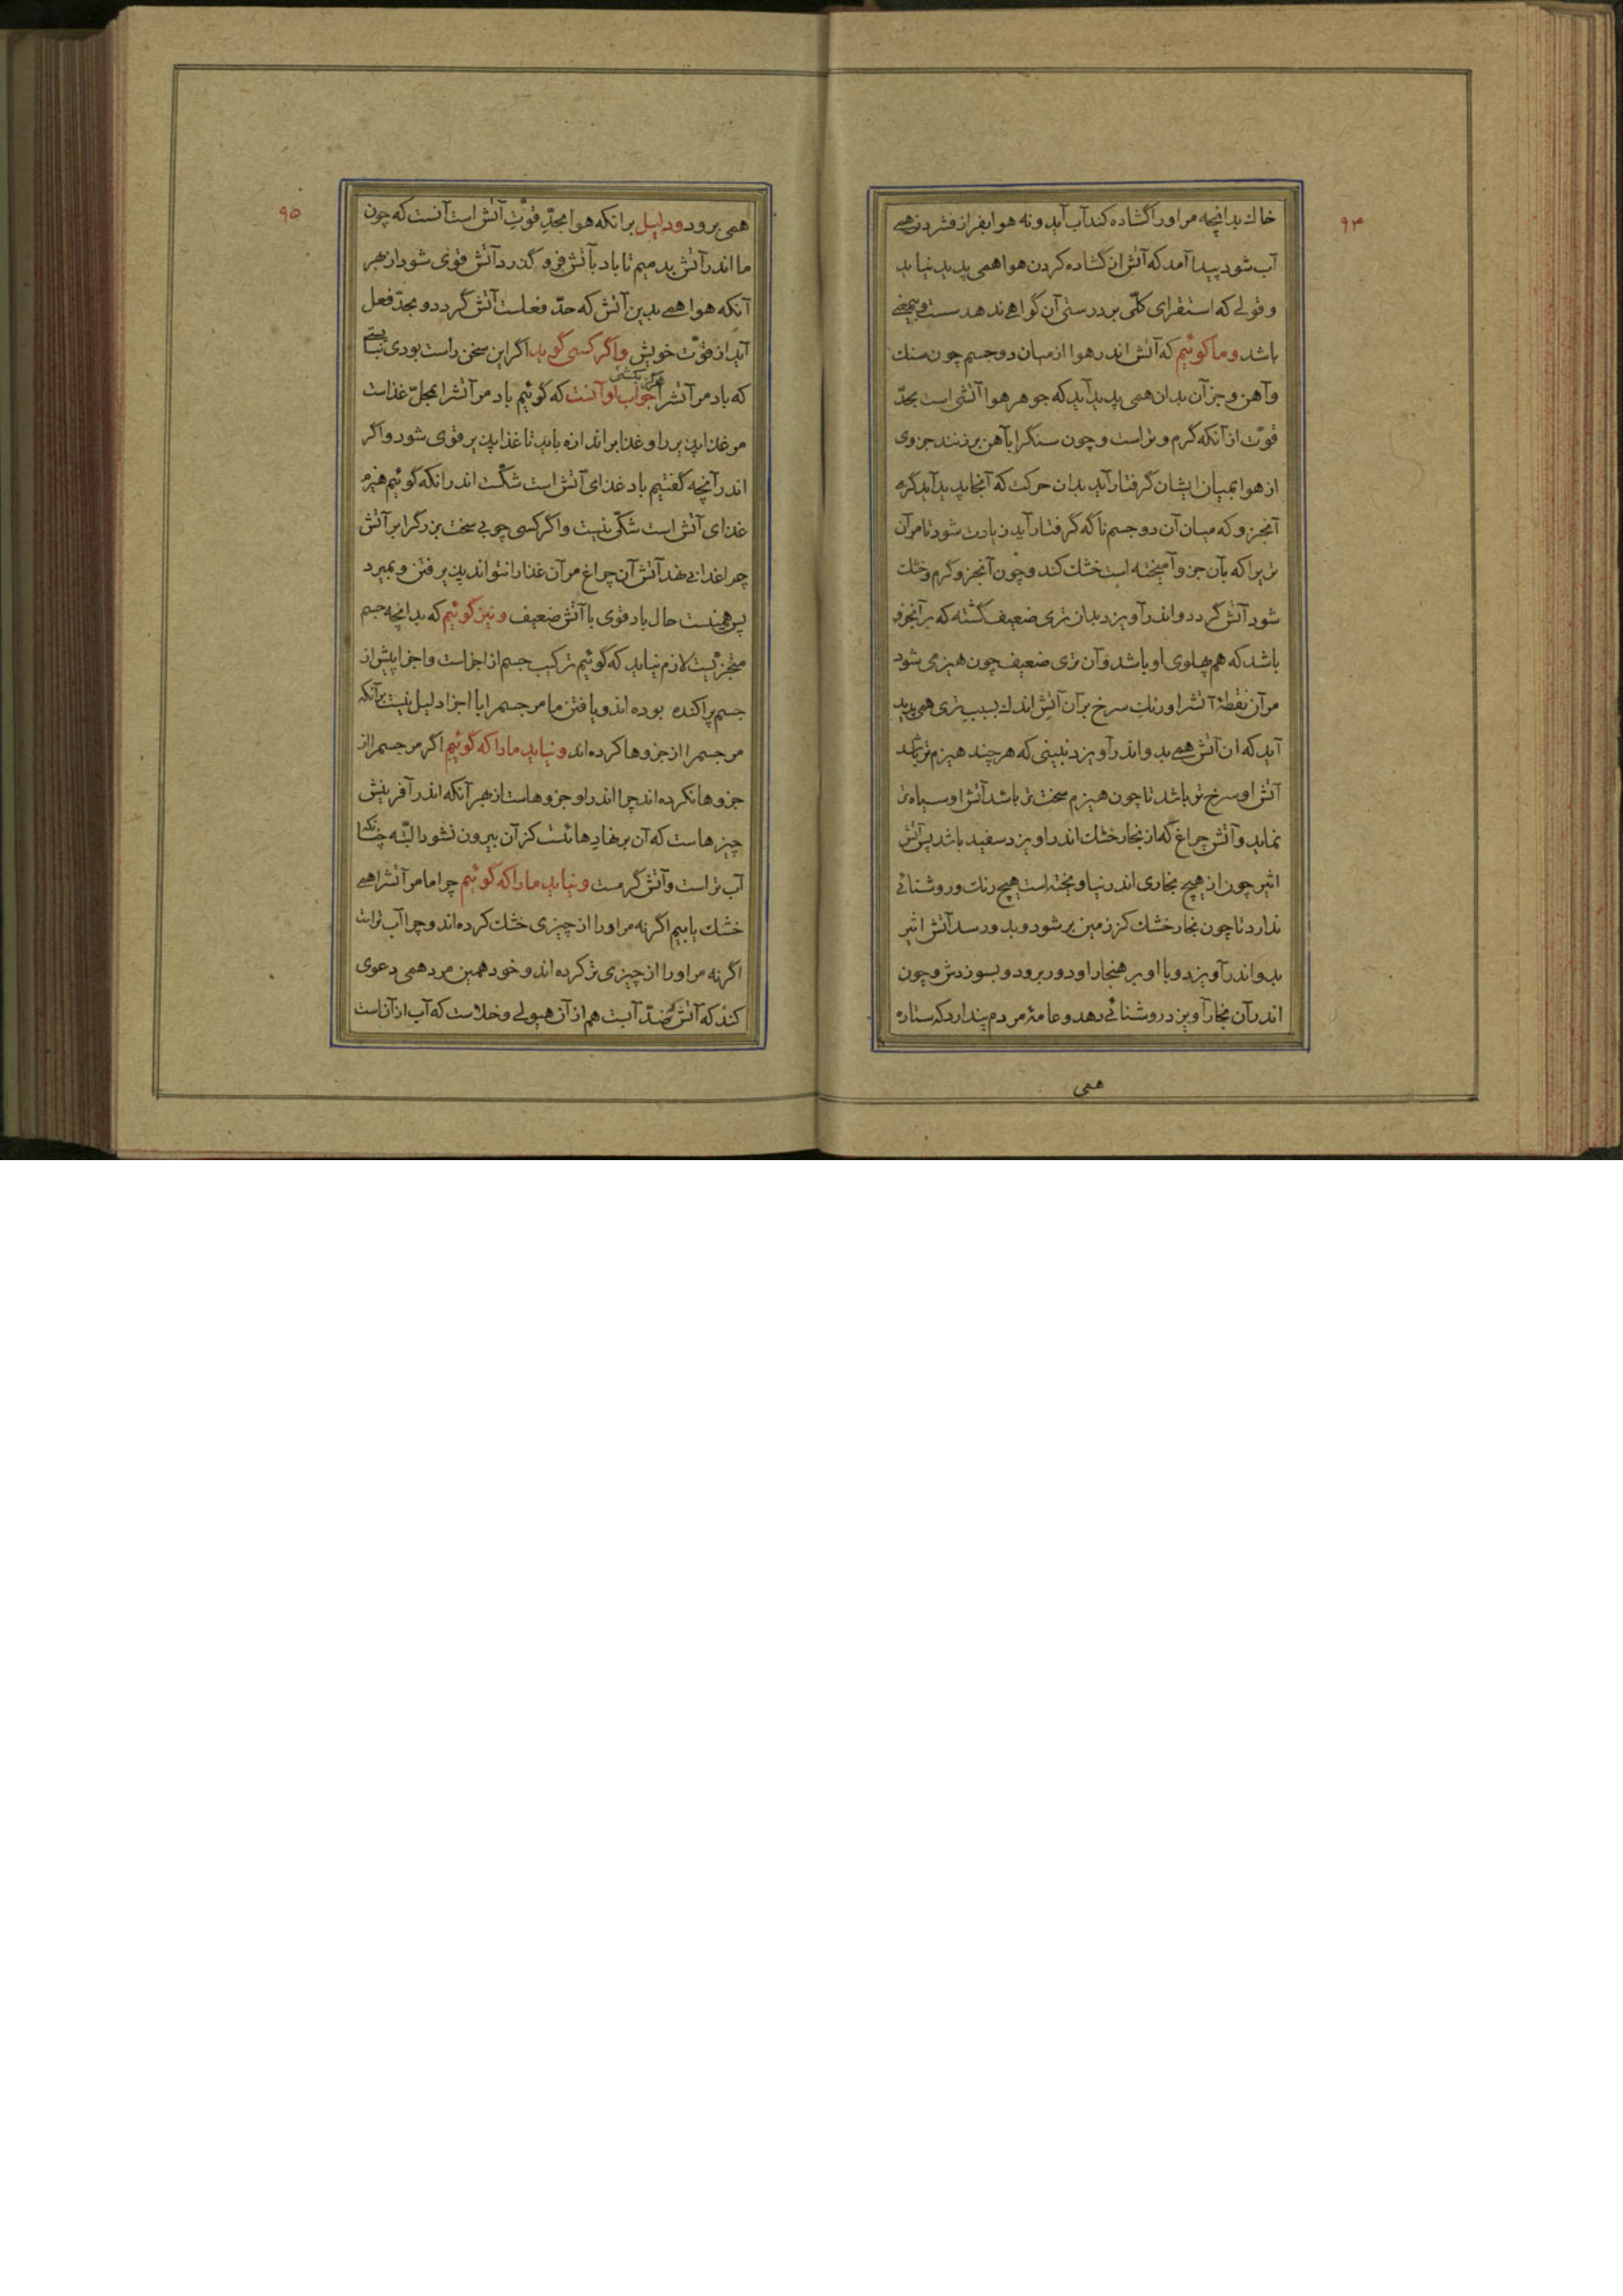 ۹۴
خاك بدانچه مر اورا گشاده کند آب آید و نه هوا بفراز فشردن همے
آب شود پیدا آمد که آتش از گشاده کردن هوا همی پدید نیاید
و قولے که استقرای کلّی بر درستی آن گواهے ندهد سست و بیمعنے
باشد و ما گوئیم که آتش اندر هوا از میان دو جسم چون سنك
و آهن و جز آن بدان همی پدید آید که جوهر هوا آتشی است بحدّ
قوّت از آنکه گرم و تر است و چون سنگرا بآهن بر زنند جزوی
از هوا بمیان ایشان گرفتار آید بدان حرکت که آنجا پدید آید گرمی
آنجزو که میان آن دو جسم ناگه گرفتار آید زیادت شود تا مر آن
تریرا که بآن جزو آمیخته است خشك کند و چون آنجزو گرم و خشك
شود آتش گردد و اندر آویزد بدان تری ضعیف گشته که بر آنجزو
باشد که هم پهلوی او باشد و آن تری ضعیف چون هیزمی شود
مر آن نقطهٔ آتشرا و رنك سرخ بر آن آتش اندك بسبب تری همی پدید
آید که آن آتش همے بدو اندر آویزد نبینی که هر چند هیزم تر باشد
آتش او سرخ تر باشد تا چون هیزم سخت تر باشد آتش او سیاه تر
نماید و آتش چراغ که از بخار خشك اندر اویزد سفید باشد پس آتش
اثیر چون از هیچ بخاری اندر نیاویخته است هیچ رنك و روشنائے
ندارد تا چون بخار خشك کز زمین بر شود و بدو رسد آتش اثیر
بدو اندر آویزد و با او بر هنجار او دور برود و بسوزدش و چون
اندر آن بخار آویزد روشنائے دهد و عامهٔ مردم پندارد که ستاره
همی
۹۵
همی برود و دلیل بر انکه هوا بحدّ قوّت آتش است آنست که چون
ما اندر آتش بدمیم تا باد بآتش فرو گذرد آتش قوی شود از بهر
آنکه هوا همے بدین آتش که حدّ فعلست آتش گردد و بحدّ فعل
آید از قوّت خویش و اگر کسی گوید اگر این سخن راست بودی نبایستے
که باد مر آتشرا هرگز بکشتی جواب او آنست که گوئیم باد مر آتشرا بمحلّ غذاست
مر غذا پذیر را و غذا بر اندازه باید تا غذا پذیر قوی شود و اگر
اندر آنچه گفتیم باد غذای آتش است شکّست اندر انکه گوئیم هیزم
غذای آتش است شکّی نیست و اگر کسی چوبے سخت بزرگرا بر آتش
چراغدانے نهد آتش آن چراغ مر آن غذا را نتواند پذیرفتن و بمیرد
پس همینست حال باد قوی با آتش ضعیف و نیز گوئیم که بدانچه جسم
متجزّیست لازم نیاید که گوئیم ترکیب جسم از اجزاست و اجزا پیش از
جسم پراکنده بوده اند و یافتن ما مر جسم را با اجزا دلیل نیست بر آنکه
مر جسم را از جزوها کرده اند و نیاید ما را که گوئیم اگر مر جسم را از
جزوها نکرده اند چرا اندر او جزوهاست از بهر آنکه اندر آفرینش
چیزهاست که آن بر نهادِ هائست کز آن بیرون نشود البتّه چنانکه
آب تر است و آتش گرمست و نیاید ما را که گوئیم چرا ما مر آتشرا همے
خشك یابیم اگر نه مر اورا از چیزی خشك کرده اند و چرا آب تر است
اگر نه مر اورا از چیزی تر کرده اند و خود همین مرد همی دعوی
کند که آتش که ضدّ آبست هم از آن هیولے و خلاست که آب از آنست